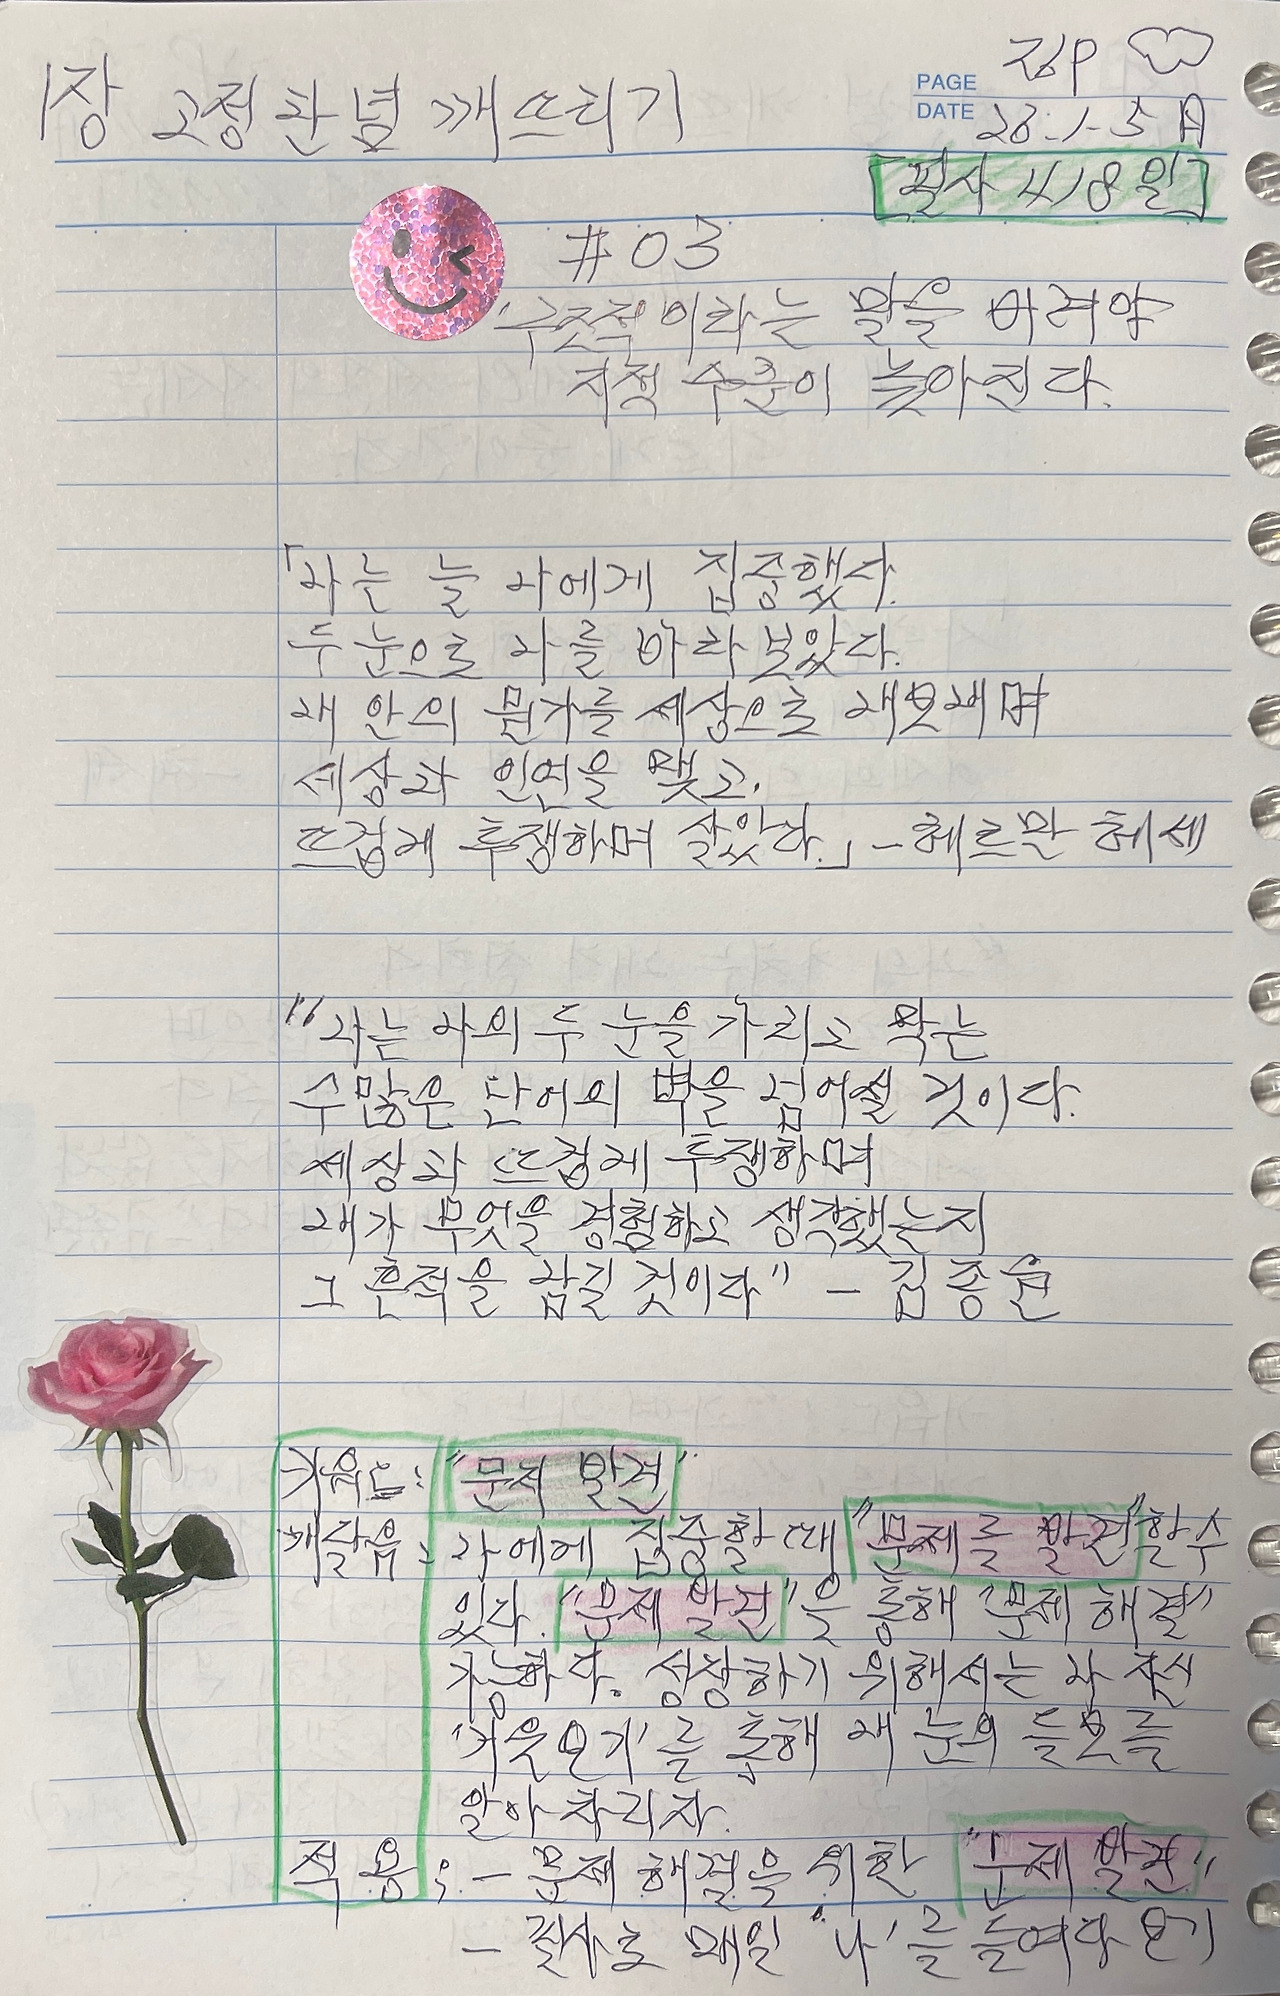 1장 고정관념 깨뜨리기
PAGE 26P
DATE 26.1.5 월
[필사 418일]
#03
'구조적'이라는 말을 버려야
지적 수준이 높아진다.
「나는 늘 나에게 집중했다.
두 눈으로 나를 바라보았다.
내 안의 뭔가를 세상으로 내보내며
세상과 인연을 맺고,
뜨겁게 투쟁하며 살았다.」 - 헤르만 헤세
"나는 나의 두 눈을 가리고 막는
수많은 단어의 벽을 넘어설 것이다.
세상과 뜨겁게 투쟁하며
내가 무엇을 경험하고 생각했는지
그 흔적을 남길 것이다" - 김종원
키워드: "문제 발견"
깨달음: 나에게 집중할 때 "문제를 발견"할 수
있다. "문제 발견"을 통해 "문제 해결"
가능하다. 성장하기 위해서는 나 자신
'거울보기'를 통해 내 눈의 들보를
알아차리자.
적용: - 문제 해결을 위한 "문제 발견"
- 필사로 매일 '나'를 들여다 보기